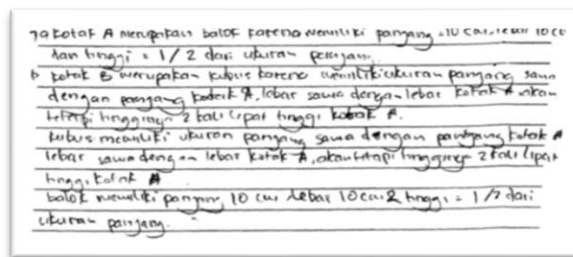 7a kotak A merupakan balok karena memiliki panjang = 10 cm, lebar 10 cm
dan tinggi = 1/2 dari ukuran panjang.
b kotak B merupakan kubus karena memiliki ukuran panjang sama
dengan panjang kotak A, lebar sama dengan lebar kotak A akan
tetapi tingginya 2 kali lipat tinggi kotak A.
kubus memiliki ukuran panjang sama dengan panjang kotak A
lebar sama dengan lebar kotak A, akan tetapi tingginya 2 kali lipat
tinggi kotak A
balok memiliki panjang 10 cm lebar 10 cm & tinggi = 1/2 dari
ukuran panjang.